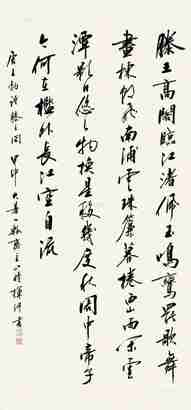 滕王高閣臨江渚佩玉鳴鸞罷歌舞
畫棟朝飛南浦雲珠簾暮捲西山雨閒雲
潭影日悠々物換星移幾度秋閣中帝子
今何在檻外長江空自流
唐王勃詩滕王閣 甲申大暑 書